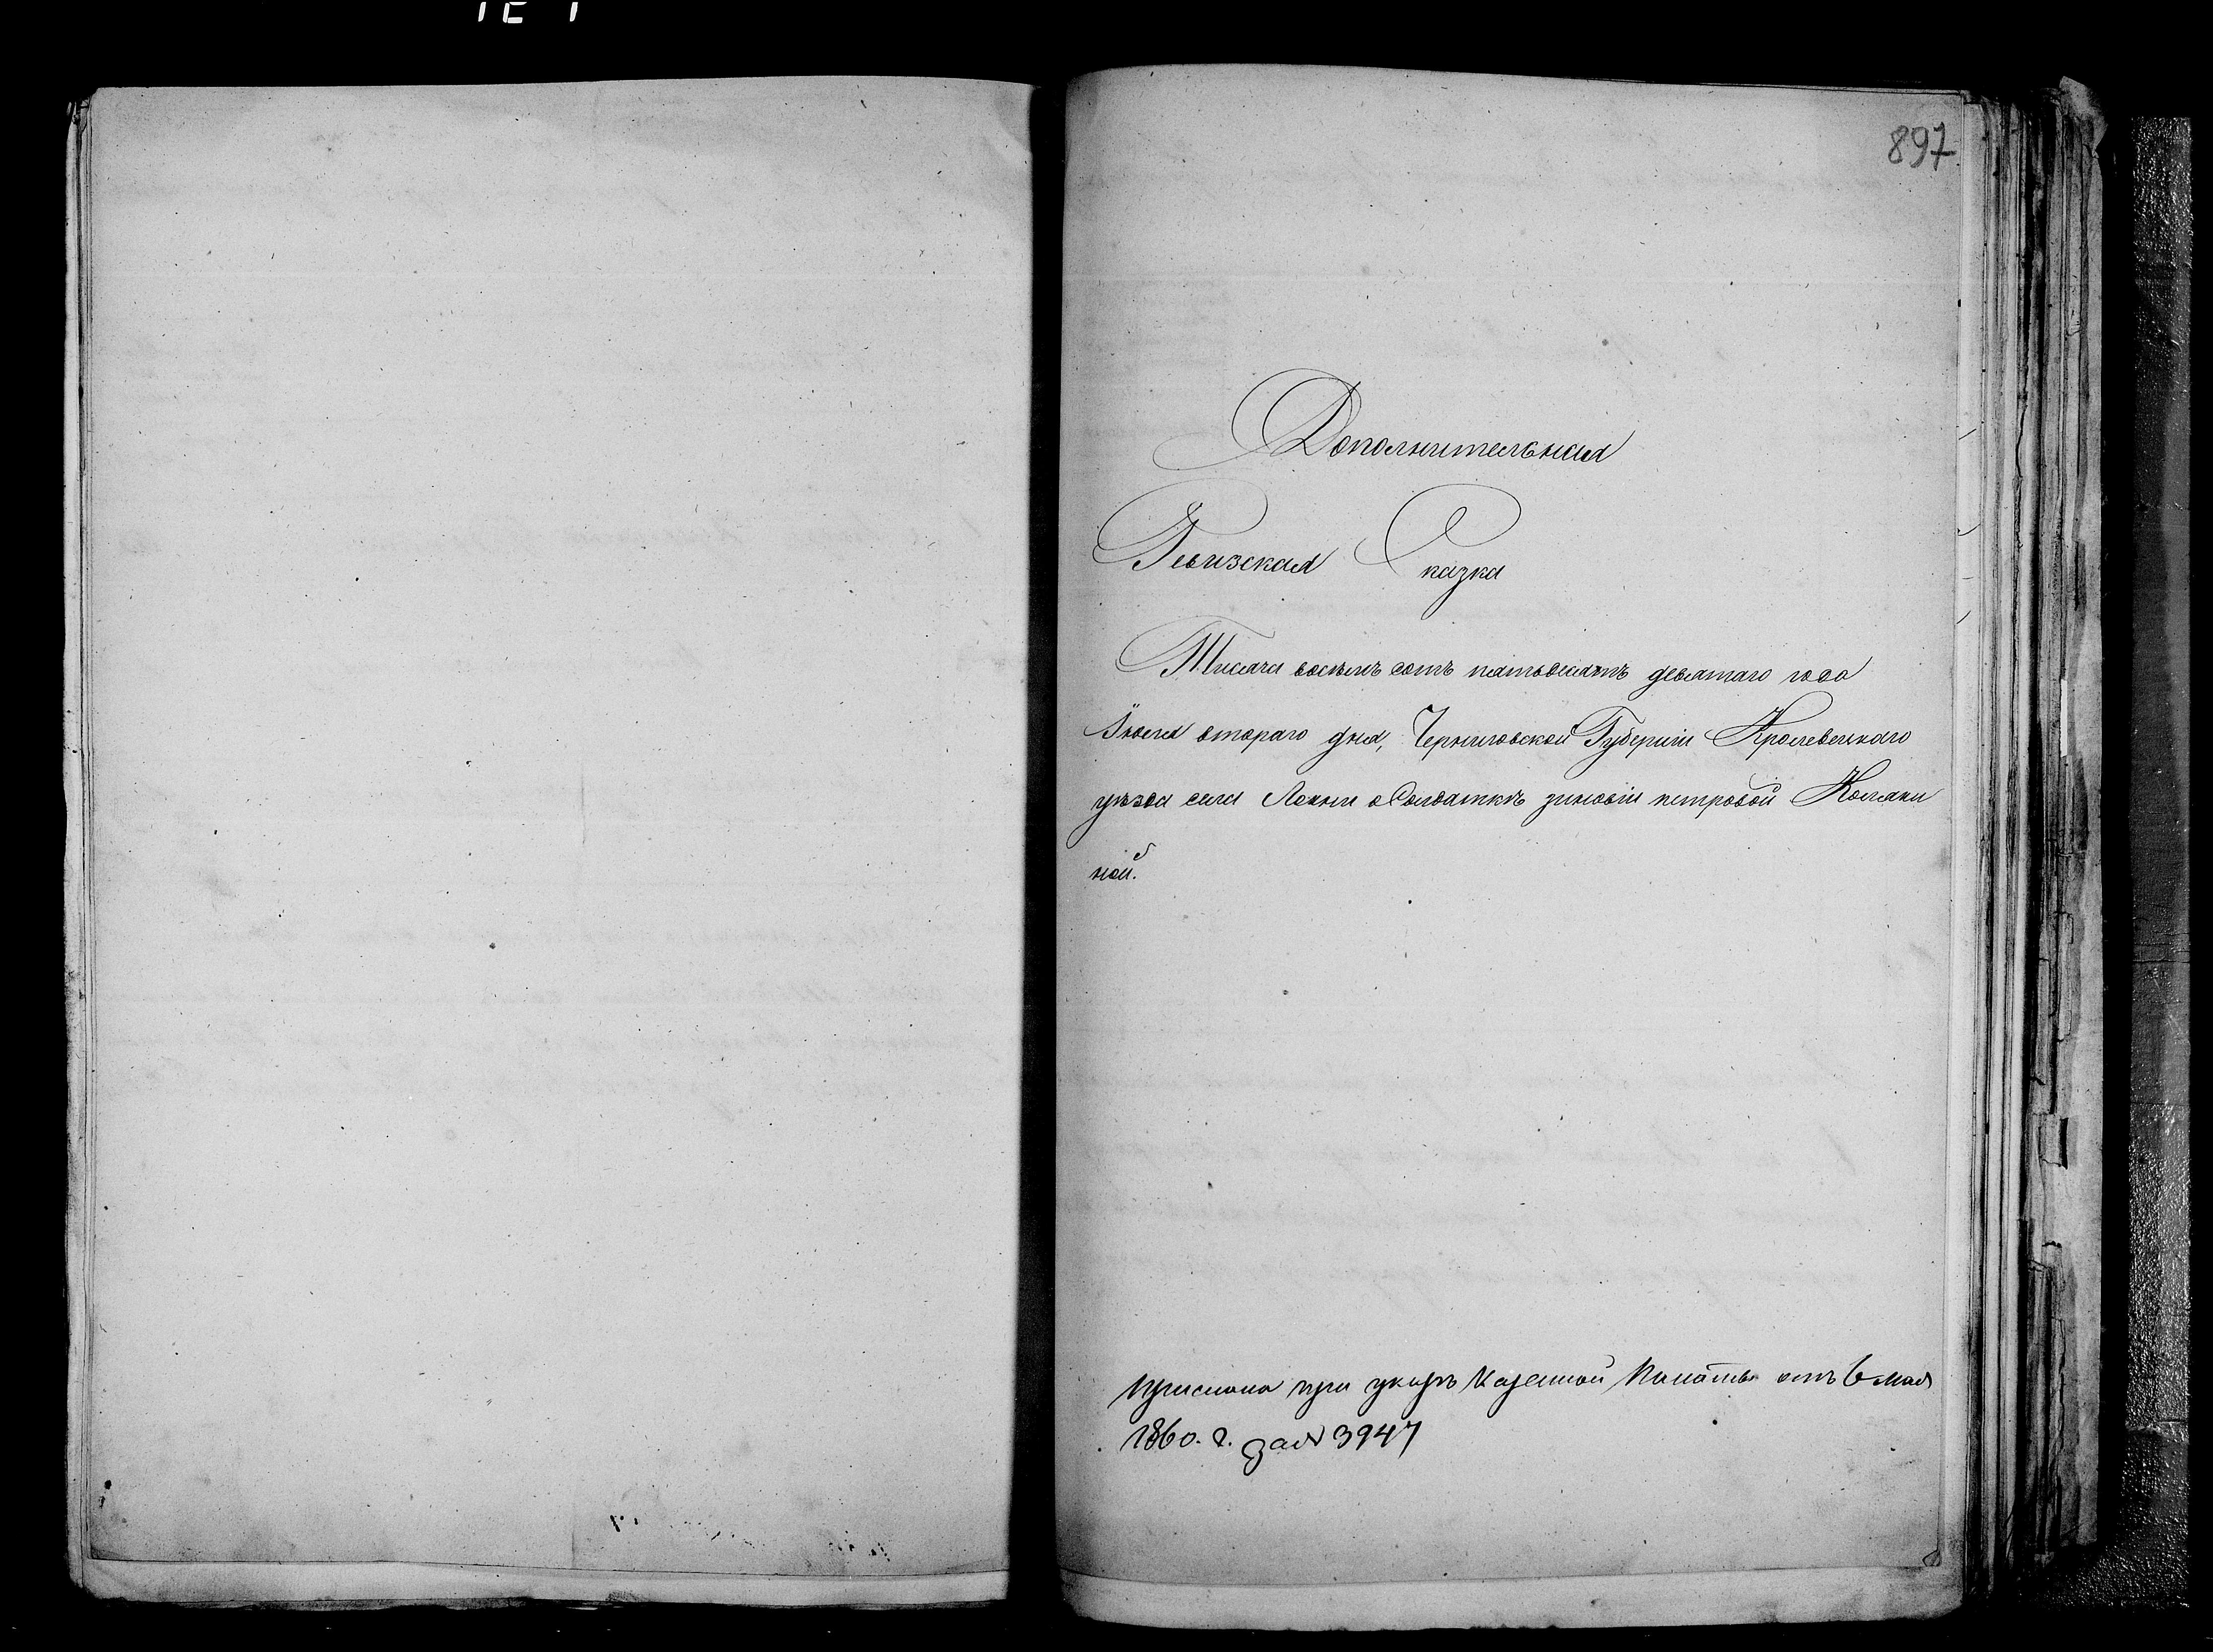 897
Дополнительная
Ревизская Сказка
Тысяча восемь сотъ пятьдесятъ девятаго года
Іюля втораго дня, Черниговской Губерніи Кролевецкаго
уѣзда села Локни о Солдаткѣ зиновіи петровой
ной.
прислана при указѣ Казенной Палаты отъ 6 мая
1860. г. за № 3947